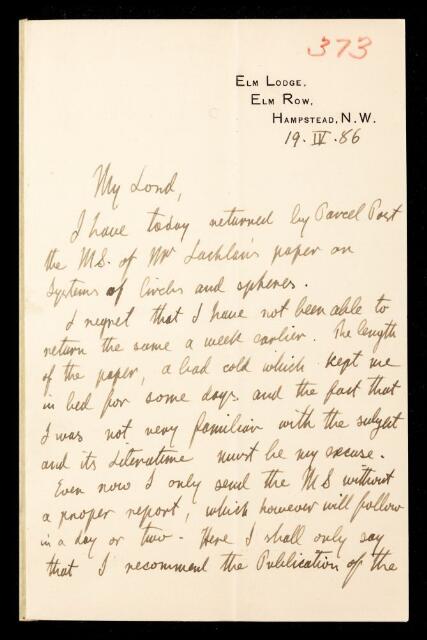 373
Elm Lodge,
Elm Row,
Hampstead, N.W.
19. IV. 86
My Lord,
I have today returned by Parcel Post
the MS. of Mr Lachlan's paper on
Systems of Circles and spheres.
I regret that I have not been able to
return the same a week earlier. The length
of the paper, a bad cold which kept me
in bed for some days and the fact that
I was not very familiar with the subject
and its Literature must be my excuse.
Even now I only send the MS without
a proper report, which however will follow
in a day or two - Here I shall only say
that I recommend the Publication of the